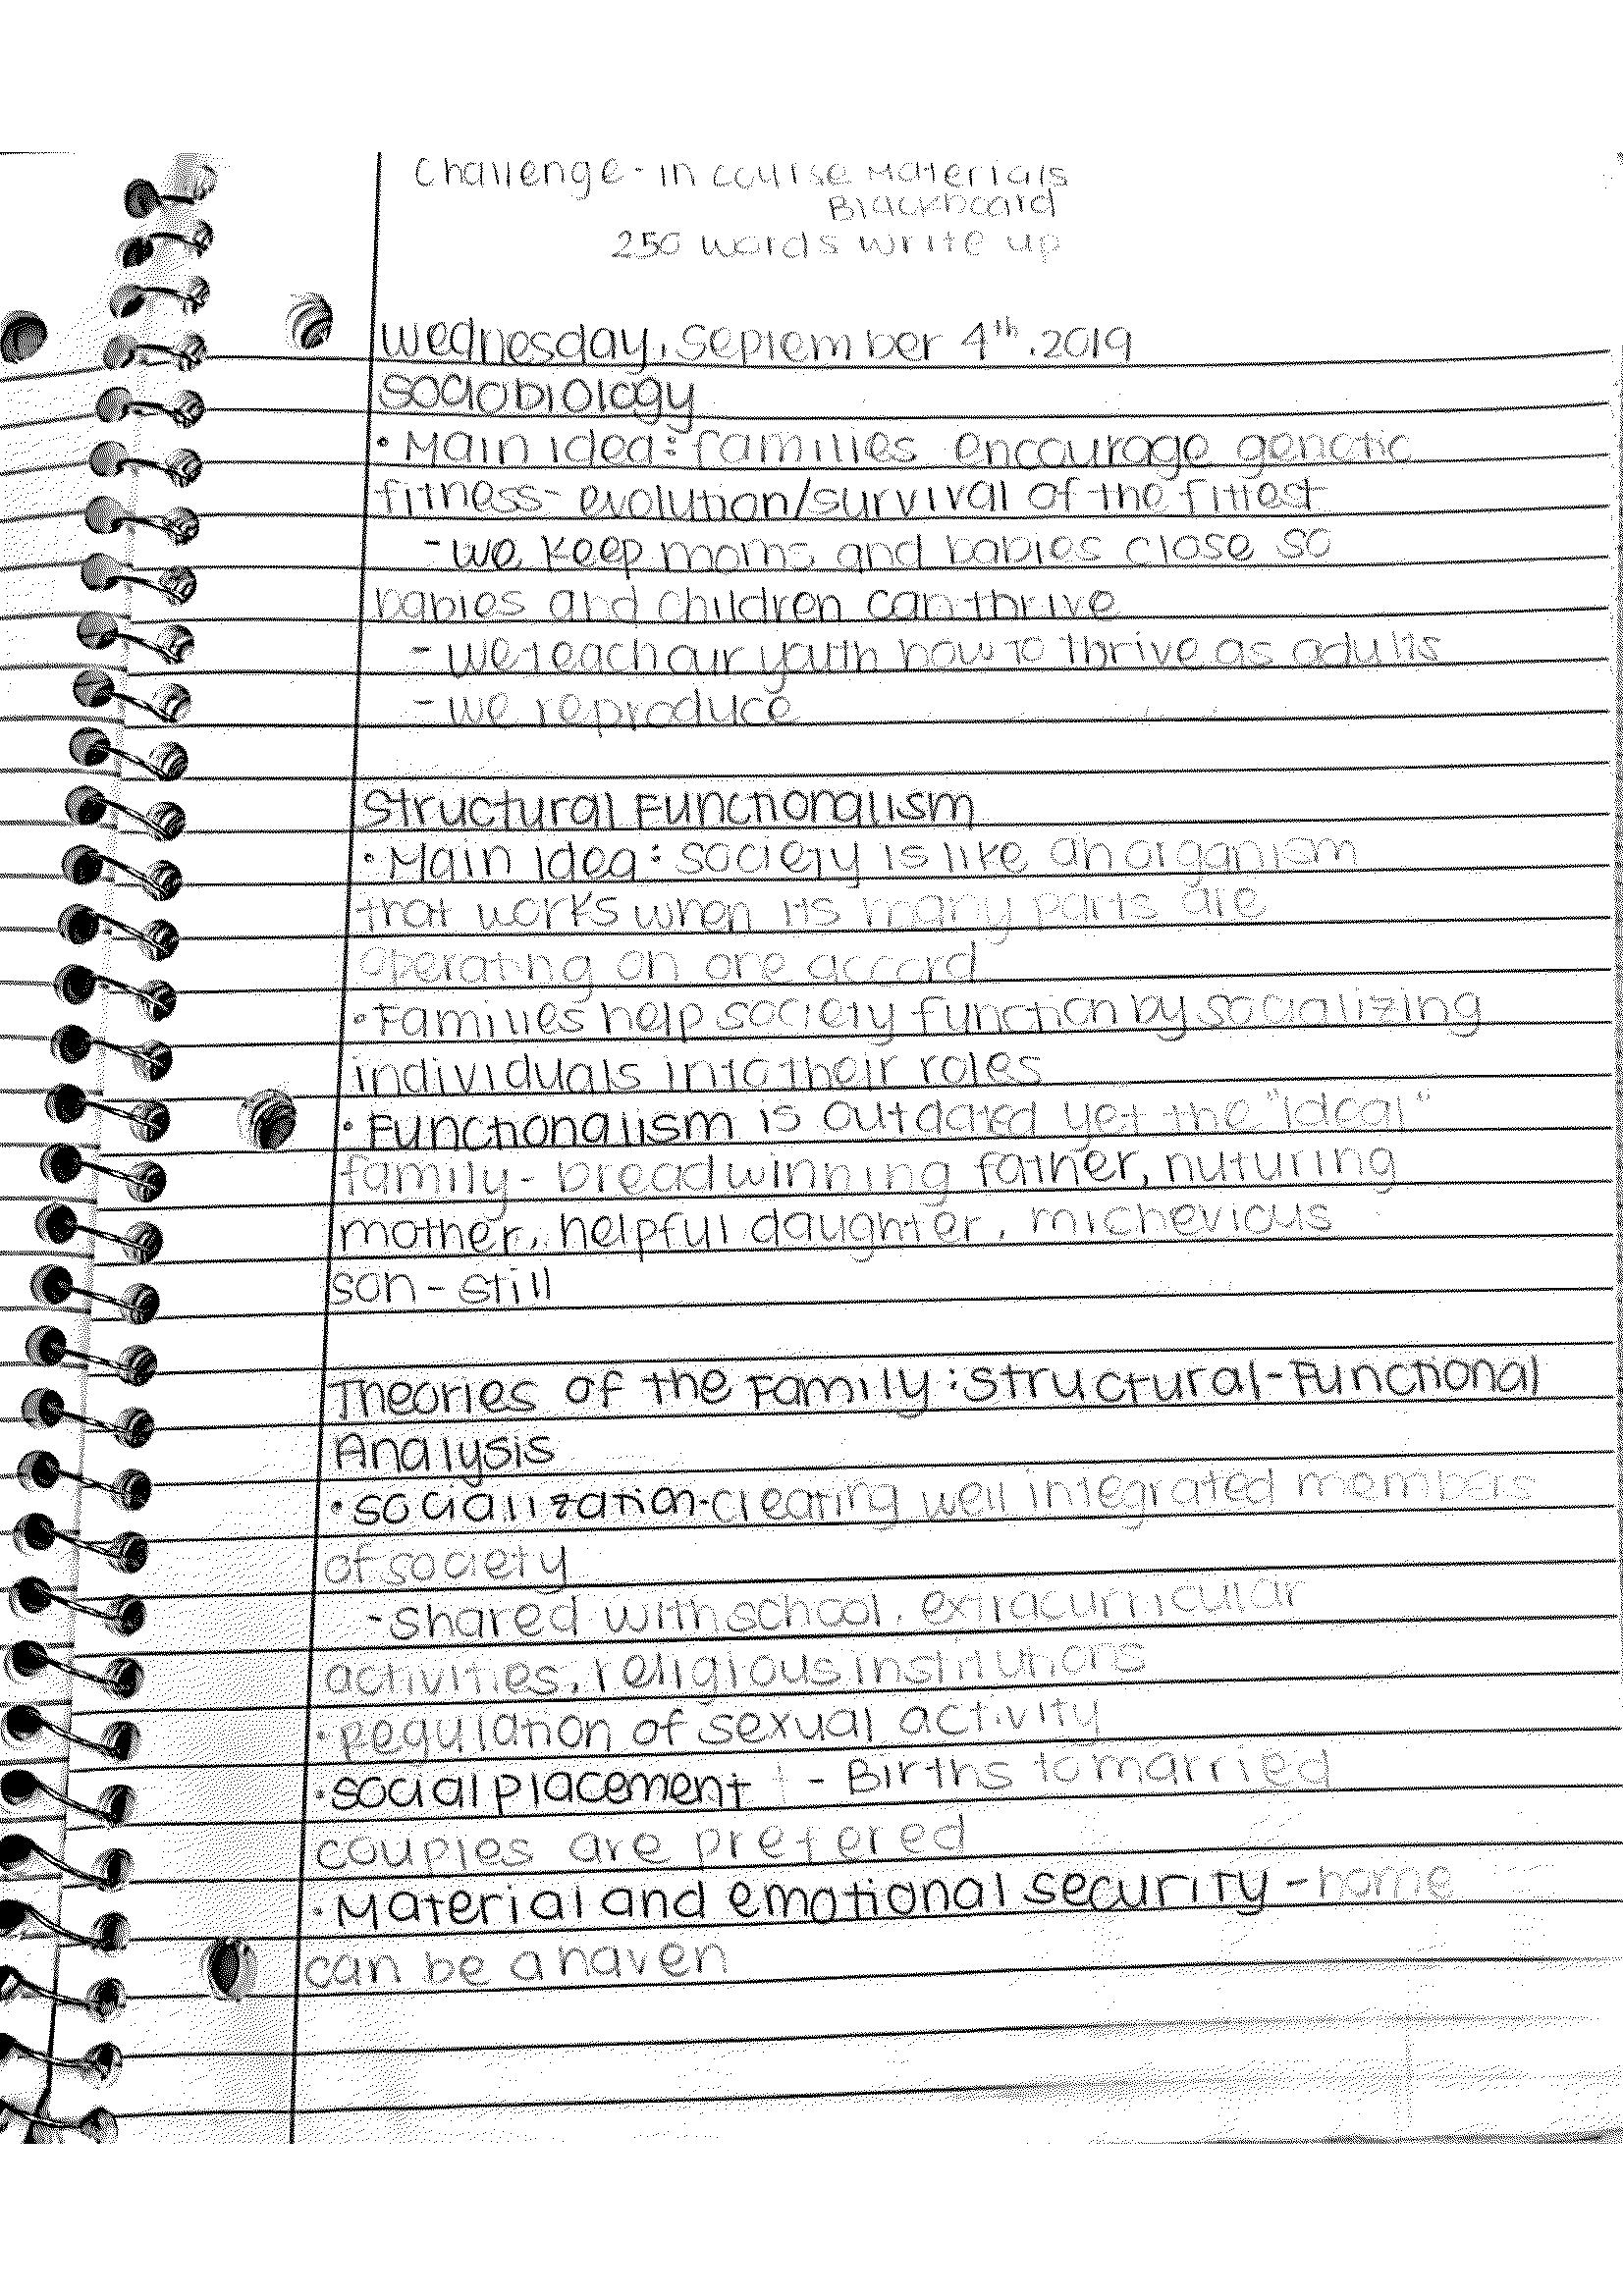 Challenge - in course Materials
Blackboard
250 words write up
Wednesday, September 4th, 2019
Sociobiology
• Main idea: families encourage genetic
fitness - evolution/survival of the fittest
- we keep moms and babies close so
babies and children can thrive
- we teach our youth how to thrive as adults
- we reproduce
Structural Functionalism
• Main idea: society is like an organism
that works when its many parts are
operating on one accord
• Families help society function by socializing
individuals into their roles
• Functionalism is outdated yet the "ideal"
family - breadwinning father, nuturing
mother, helpful daughter, michevious
son - still
Theories of the Family: Structural-Functional
Analysis
• socialization - creating well integrated members
of society
- shared with school, extracurricular
activities, religious institutions
• Regulation of sexual activity
• social placement - Births to married
couples are prefered
• Material and emotional security - home
can be a haven